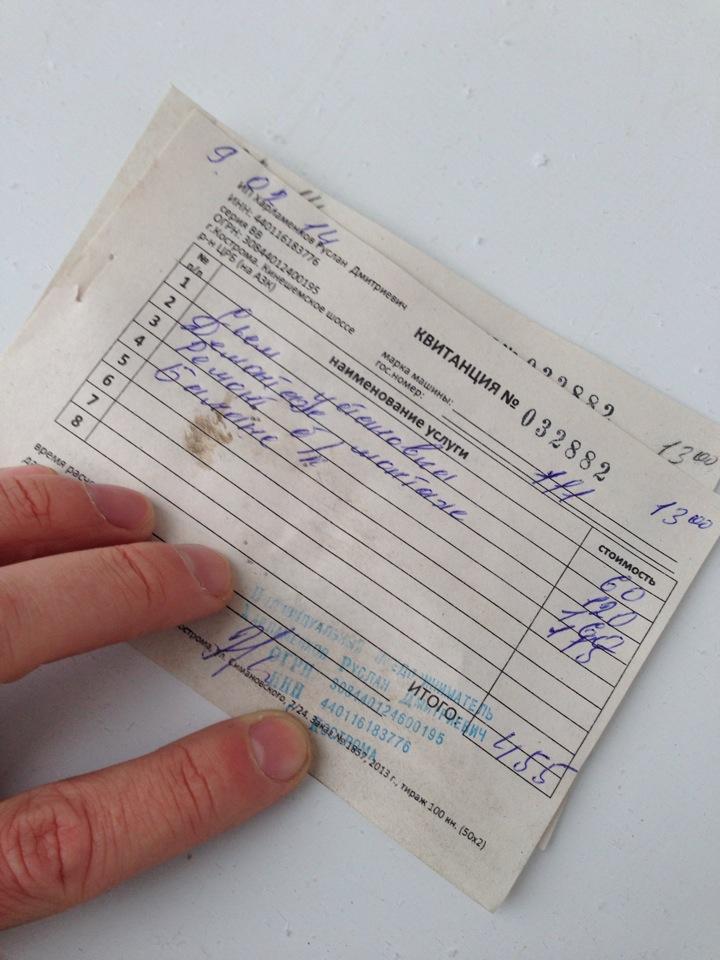 9 02 14
ИП Харламенков Руслан Дмитриевич
ИНН: 440116183776
серия ВВ
ОГРН: 30844012400195
г.Кострома, Кинешемское шоссе
р-н ЦРБ (на АЗК)
КВИТАНЦИЯ № 032882
032882
марка машины:
гос.номер: 111
13 00
13 00
№ п/п
наименование услуги
стоимость
1 Съем установка 60
2 Демонтаж монтаж 120
3 Ремонт
4
5
6
7
8
ИТОГО: 455
время
Индивидуальный предприниматель
Харламенков Руслан Дмитриевич
ОГРН 308440124600195
ИНН 440116183776
Кострома
Кострома, ул. Симановского, 7/24, Заказ № 1857, 2013 г., тираж 100 кн. (50х2)